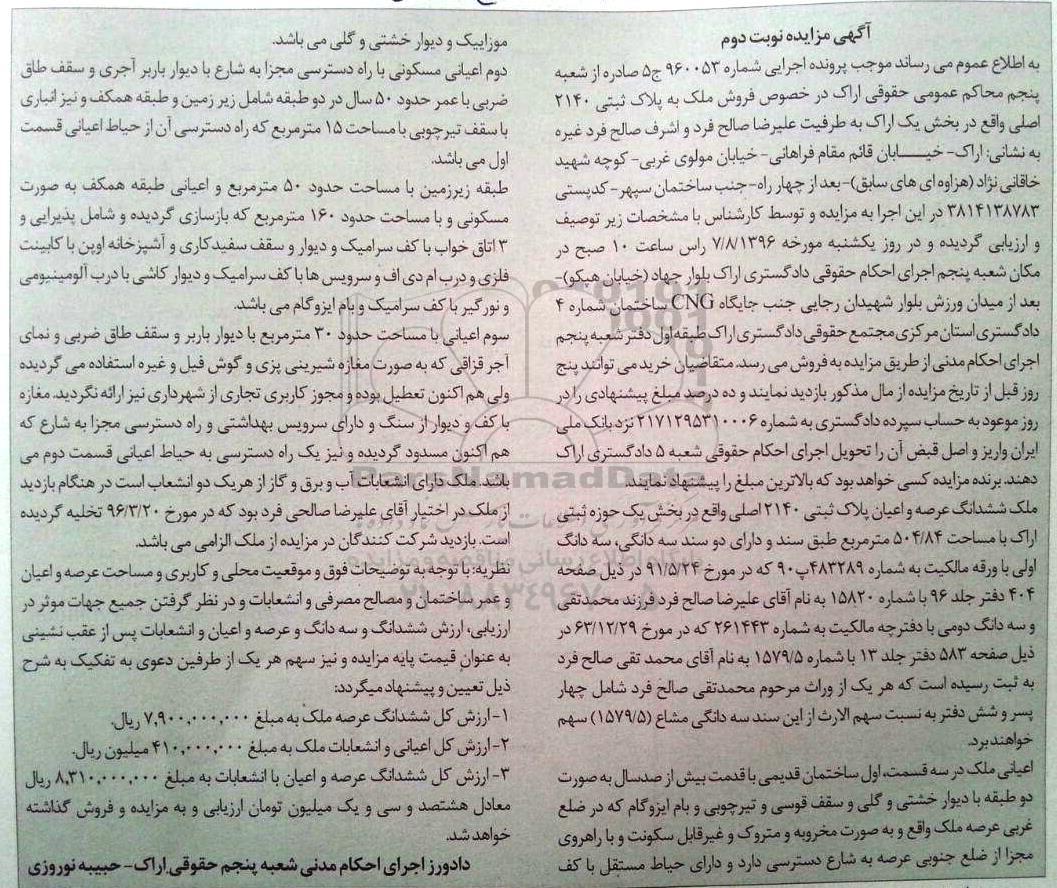 آگهی مزایده نوبت دوم
به اطلاع عموم می رساند موجب پرونده اجرایی شماره ۹۶۰۰۵۳ ج۵ صادره از شعبه
پنجم محاکم عمومی حقوقی اراک در خصوص فروش ملک به پلاک ثبتی ۲۱۴۰
اصلی واقع در بخش یک اراک به طرفیت علیرضا صالح فرد و اشرف صالح فرد غیره
به نشانی: اراک- خیـــابان قائم مقام فراهانی- خیابان مولوی غربی- کوچه شهید
خاقانی نژاد (هزاوه ای های سابق)-بعد از چهار راه-جنب ساختمان سپهر- کدپستی
۳۸۱۴۱۳۸۷۸۳ در این اجرا به مزایده و توسط کارشناس با مشخصات زیر توصیف
و ارزیابی گردیده و در روز یکشنبه مورخه ۷/۸/۱۳۹۶ راس ساعت ۱۰ صبح در
مکان شعبه پنجم اجرای احکام حقوقی دادگستری اراک بلوار جهاد (خیابان هپکو)-
بعد از میدان ورزش بلوار شهیدان رجایی جنب جایگاه CNG ساختمان شماره ۴
دادگستری استان مرکزی مجتمع حقوقی دادگستری اراک طبقه اول دفتر شعبه پنجم
اجرای احکام مدنی از طریق مزایده به فروش می رسد. متقاضیان خرید می توانند پنج
روز قبل از تاریخ مزایده از مال مذکور بازدید نمایند و ده درصد مبلغ پیشنهادی را در
روز موعود به حساب سپرده دادگستری به شماره ۲۱۷۱۲۹۵۳۱۰۰۰۶ نزد بانک ملی
ایران واریز و اصل قبض آن را تحویل اجرای احکام حقوقی شعبه ۵ دادگستری اراک
دهند. برنده مزایده کسی خواهد بود که بالاترین مبلغ را پیشنهاد نمایند.
ملک ششدانگ عرصه و اعیان پلاک ثبتی ۲۱۴۰ اصلی واقع در بخش یک حوزه ثبتی
اراک با مساحت ۵۰۴/۸۴ مترمربع طبق سند و دارای دو سند سه دانگی، سه دانگ
اولی با ورقه مالکیت به شماره ۴۸۳۲۸۹پ۹۰ که در مورخ ۹۱/۵/۲۴ در ذیل صفحه
۴۰۴ دفتر جلد ۹۶ با شماره ۱۵۸۲۰ به نام آقای علیرضا صالح فرد فرزند محمدتقی
و سه دانگ دومی با دفترچه مالکیت به شماره ۲۶۱۴۴۳ که در مورخ ۶۳/۱۲/۲۹ در
ذیل صفحه ۵۸۳ دفتر جلد ۱۳ با شماره ۱۵۷۹/۵ به نام آقای محمد تقی صالح فرد
به ثبت رسیده است که هر یک از وراث مرحوم محمدتقی صالح فرد شامل چهار
پسر و شش دفتر به نسبت سهم الارث از این سند سه دانگی مشاع (۱۵۷۹/۵) سهم
خواهند برد.
اعیانی ملک در سه قسمت، اول ساختمان قدیمی با قدمت بیش از صدسال به صورت
دو طبقه با دیوار خشتی و گلی و سقف قوسی و تیرچوبی و بام ایزوگام که در ضلع
غربی عرصه ملک واقع و به صورت مخروبه و متروک و غیرقابل سکونت و با راهروی
مجزا از ضلع جنوبی عرصه به شارع دسترسی دارد و دارای حیاط مستقل با کف
موزاییک و دیوار خشتی و گلی می باشد.
دوم اعیانی مسکونی با راه دسترسی مجزا به شارع با دیوار باربر آجری و سقف طاق
ضربی با عمر حدود ۵۰ سال در دو طبقه شامل زیر زمین و طبقه همکف و نیز انباری
با سقف تیرچوبی با مساحت ۱۵ مترمربع که راه دسترسی آن از حیاط اعیانی قسمت
اول می باشد.
طبقه زیرزمین با مساحت حدود ۵۰ مترمربع و اعیانی طبقه همکف به صورت
مسکونی و با مساحت حدود ۱۶۰ مترمربع که بازسازی گردیده و شامل پذیرایی و
۳ اتاق خواب با کف سرامیک و دیوار و سقف سفیدکاری و آشپزخانه اوپن با کابینت
فلزی و درب ام دی اف و سرویس ها با کف سرامیک و دیوار کاشی با درب آلومینیومی
و نورگیر با کف سرامیک و بام ایزوگام می باشد.
سوم اعیانی با مساحت حدود ۳۰ مترمربع با دیوار باربر و سقف طاق ضربی و نمای
آجر قزاقی که به صورت مغازه شیرینی پزی و گوش فیل و غیره استفاده می گردیده
ولی هم اکنون تعطیل بوده و مجوز کاربری تجاری از شهرداری نیز ارائه نگردید. مغازه
با کف و دیوار از سنگ و دارای سرویس بهداشتی و راه دسترسی مجزا به شارع که
هم اکنون مسدود گردیده و نیز یک راه دسترسی به حیاط اعیانی قسمت دوم می
باشد. ملک دارای انشعابات آب و برق و گاز از هریک دو انشعاب است در هنگام بازدید
از ملک در اختیار آقای علیرضا صالحی فرد بود که در مورخ ۹۶/۳/۲۰ تخلیه گردیده
است. بازدید شرکت کنندگان در مزایده از ملک الزامی می باشد.
نظریه: با توجه به توضیحات فوق و موقعیت محلی و کاربری و مساحت عرصه و اعیان
و عمر ساختمان و مصالح مصرفی و انشعابات و در نظر گرفتن جمیع جهات موثر در
ارزیابی، ارزش ششدانگ و سه دانگ و عرصه و اعیان و انشعابات پس از عقب نشینی
به عنوان قیمت پایه مزایده و نیز سهم هر یک از طرفین دعوی به تفکیک به شرح
ذیل تعیین و پیشنهاد میگردد:
۱-ارزش کل ششدانگ عرصه ملک به مبلغ ۷,۹۰۰,۰۰۰,۰۰۰ ریال.
۲-ارزش کل اعیانی و انشعابات ملک به مبلغ ۴۱۰,۰۰۰,۰۰۰ میلیون ریال.
۳- ارزش کل ششدانگ عرصه و اعیان با انشعابات به مبلغ ۸,۳۱۰,۰۰۰,۰۰۰ ریال
معادل هشتصد و سی و یک میلیون تومان ارزیابی و به مزایده و فروش گذاشته
خواهد شد.
دادورز اجرای احکام مدنی شعبه پنجم حقوقی اراک- حبیبه نوروزی
ParsNamadData